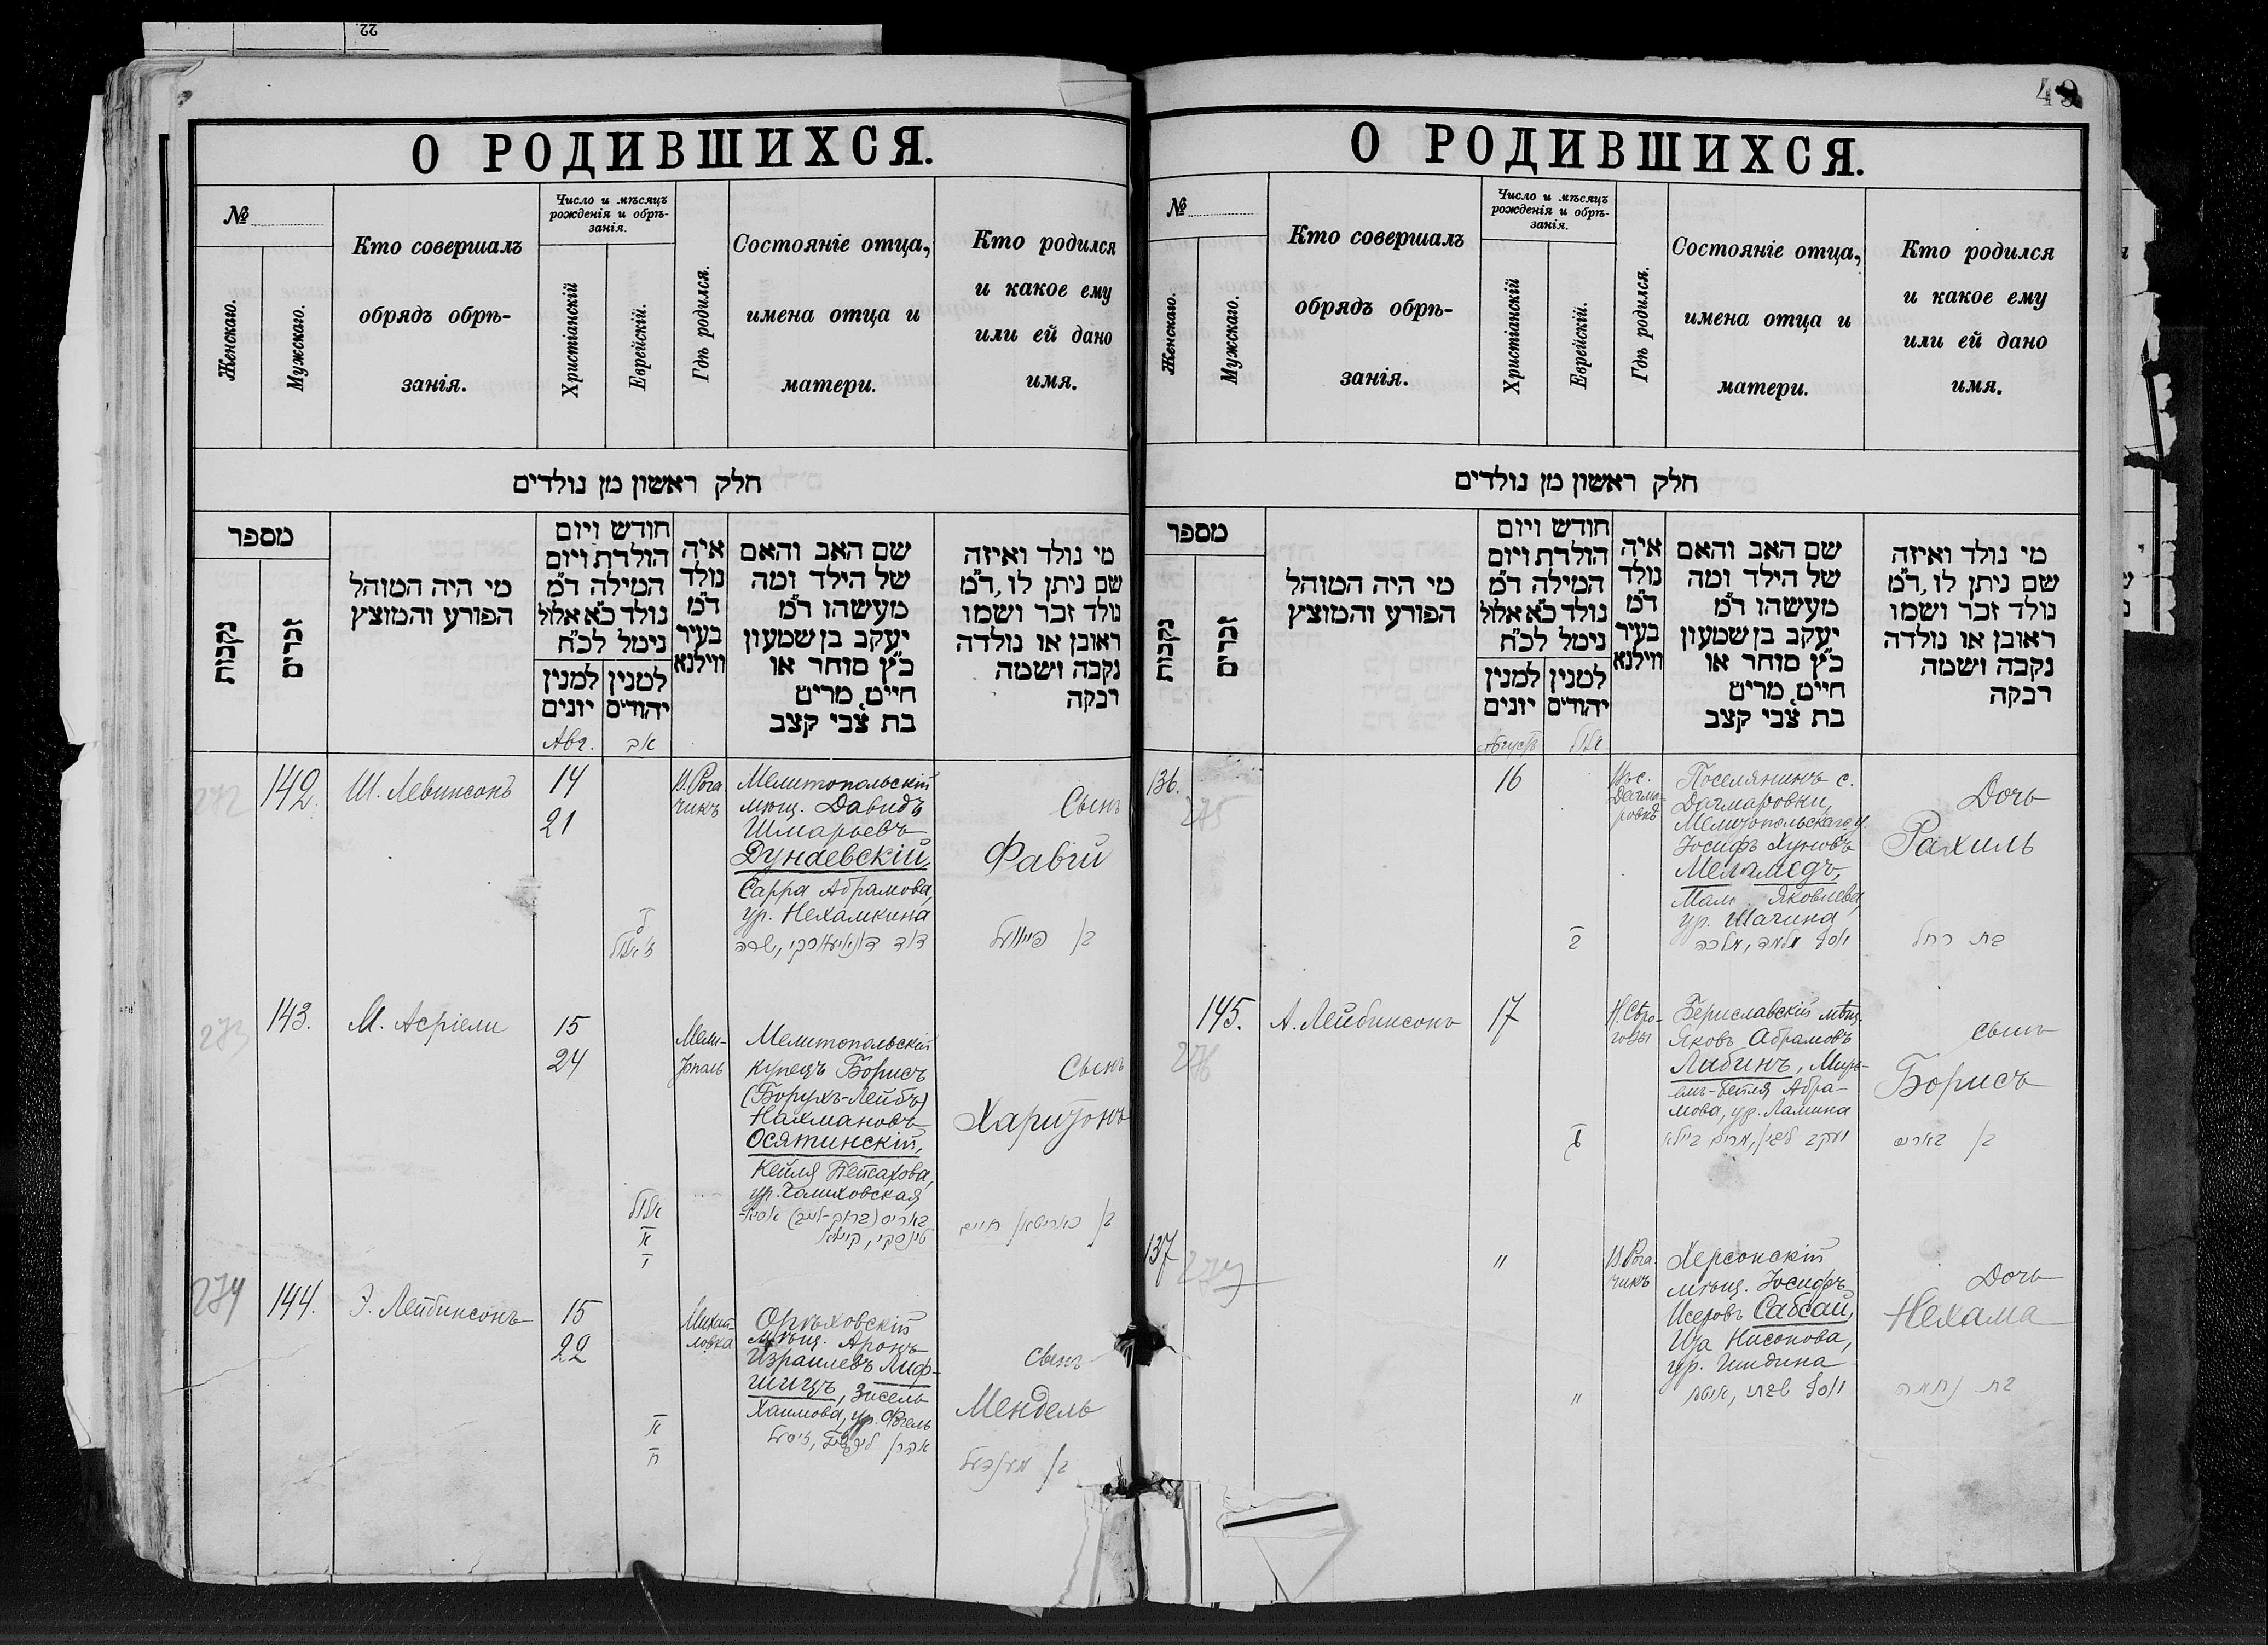 22
О РОДИВШИХСЯ.
№
Женскаго.
Мужскаго.
Кто совершалъ
обрядъ обрѣ-
занія.
Число и мѣсяцъ
рожденія и обрѣ-
занія.
Христіанскій
Еврейскій.
Гдѣ родился.
Состояніе отца,
имена отца и
матери.
Кто родился
и какое ему
или ей дано
имя.
חלק ראשון מן נולדים
מספר
נקבות
זכרים
מי היה המוהל
הפורע והמוצץ
חודש ויום
הולדת ויום
המילה ד"מ
נולד כ"א אלול
נימל לכ"ח
למנין
יונים
למנין
יהודים
איה
נולד
ד"מ
בעיר
ווילנא
שם האב והאם
של הילד ומה
מעשהו ד"מ
יעקב בן שמעון
כ"ץ סוחר או
חייט, מרים
בת צבי קצב
מי נולד ואיזה
שם ניתן לו, ד"מ
נולד זכר ושמו
ראובן או נולדה
נקבה ושמה
רבקה
Авг.
אב
272
142.
Ш. Левинсонъ
14
21
В. Рога
чикъ
Мелитопольскій
мѣщ. Давидъ
Шмарьевъ
Дунаевскій,
Сарра Абрамова,
ур. Нехамкина
Сынъ
Фавій
273
143.
М. Асріели
15
24
Мели-
тополь
Мелитопольскій
купецъ Борисъ
(Борухъ-Лейбъ)
Нахмановъ
Осятинскій,
Кейля Пейсахова,
ур. Галиховская
Сынъ
Харитонъ
אלול
274
144.
Э. Лейбинсонъ
15
22
Михай-
ловка
Орѣховскій
мѣщ. Аронъ
Израилевъ Лиф-
шицъ, Зисель
Хаимова, ур. Фогель
Сынъ
Мендель
בן מענדעל
49
О РОДИВШИХСЯ.
№
Женскаго.
Мужскаго.
Кто совершалъ
обрядъ обрѣ-
занія.
Число и мѣсяцъ
рожденія и обрѣ-
занія.
Христіанскій
Еврейскій.
Гдѣ родился.
Состояніе отца,
имена отца и
матери.
Кто родился
и какое ему
или ей дано
имя.
חלק ראשון מן נולדים
מספר
נקבות
זכרים
מי היה המוהל
הפורע והמוצץ
חודש ויום
הולדת ויום
המילה ד"מ
נולד כ"א אלול
נימל לכ"ח
למנין
יונים
למנין
יהודים
איה
נולד
ד"מ
בעיר
ווילנא
שם האב והאם
של הילד ומה
מעשהו ד"מ
יעקב בן שמעון
כ"ץ סוחר או
חייט, מרים
בת צבי קצב
מי נולד ואיזה
שם ניתן לו, ד"מ
נולד זכר ושמו
ראובן או נולדה
נקבה ושמה
רבקה
Августъ
אלול
136.
275
16
Дагма-
ровкѣ
Поселянинъ с.
Дагмаровки,
Мелитопольскаго у.
Іосифъ Хуновъ
Меламедъ,
Яковлева,
ур. Шагина
יוסף מלמד, מלכה
Дочь
Рахиль
בת רחל
145.
276
А. Лейбинсонъ
17
Н. Сѣро-
гозы
Бериславскій мѣщ.
Яковъ Абрамовъ
Либинъ, Мирь-
емъ-Бейля Абра-
мова, ур. Ламина
יעקב ליבין, מרים ביילא
Сынъ
Борисъ
בן באריס
137
277
"
В. Рога-
чикъ
Херсонскій
мѣщ. Іосифъ
Исеровъ Сабсай,
Ита Нисонова,
ур. Гиндина
Дочь
Нехама
בת נחמה
"